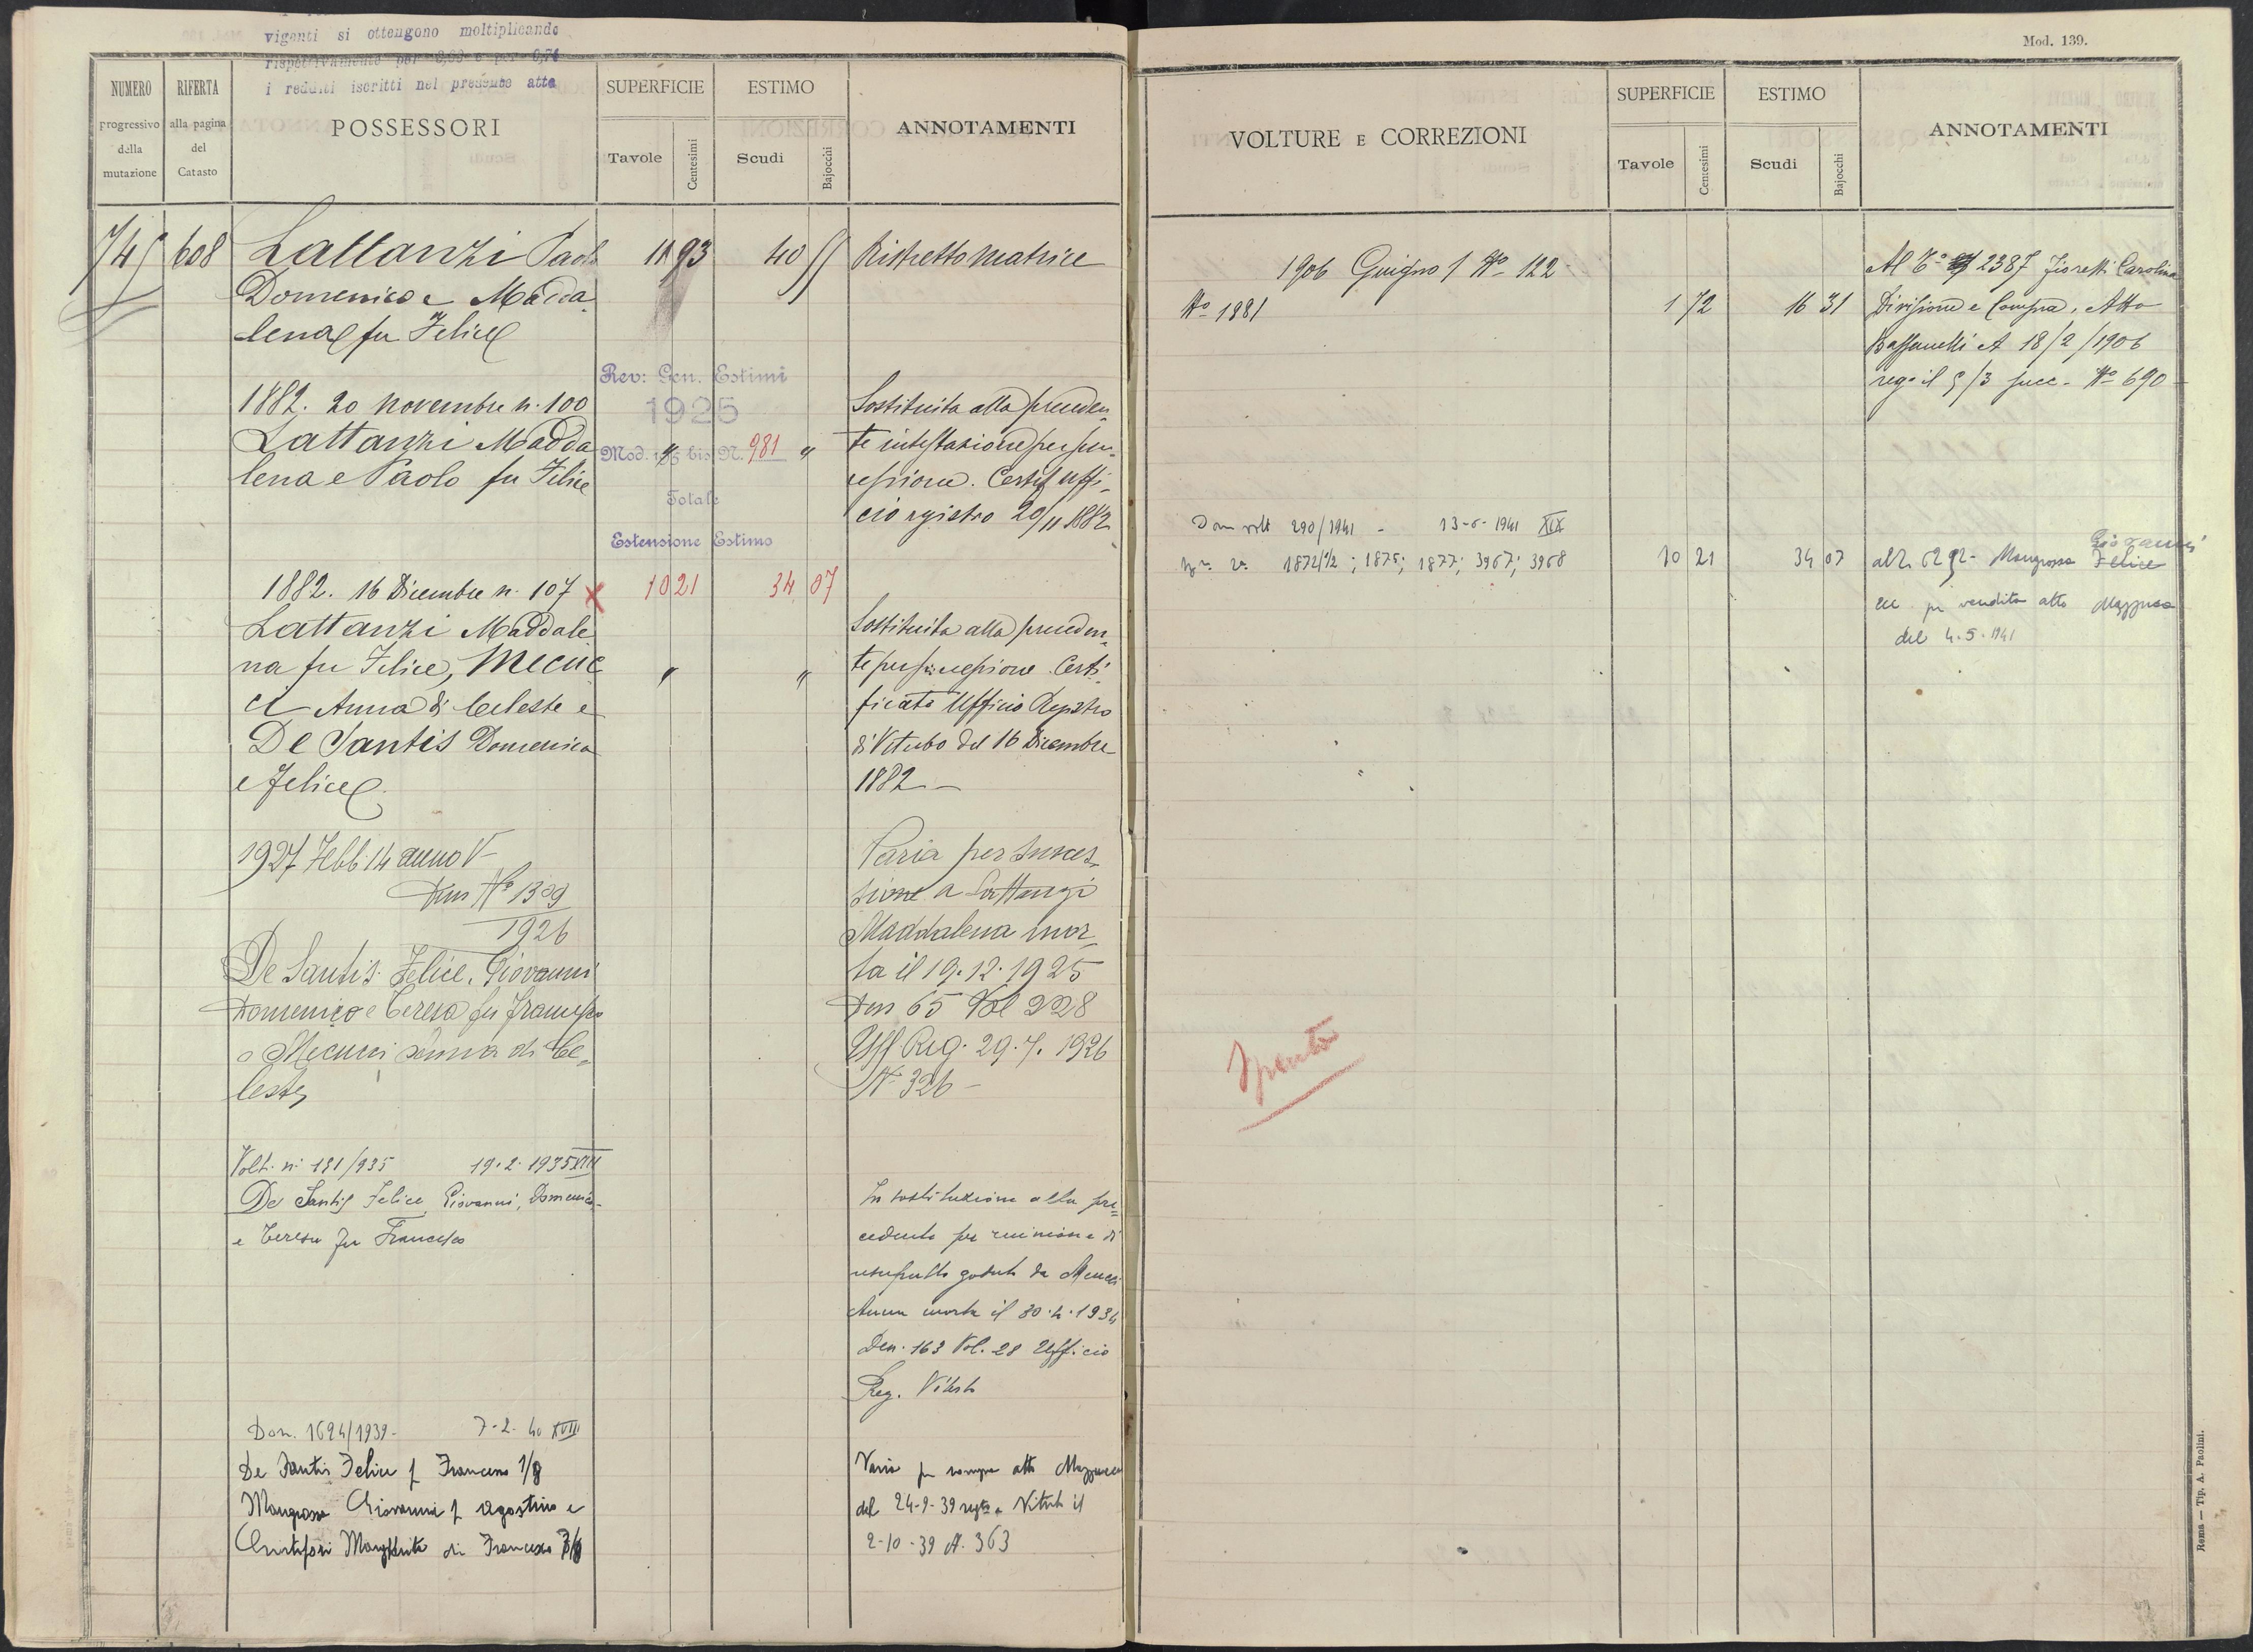 viganti si ottengono moltiplicando
rispettivamente per 0,69 e per 0,74
i redditi iscritti nel presente atto
NUMERO
progressivo
della
mutazione
RIFERTA
alla pagina
del
Catasto
POSSESSORI
SUPERFICIE
Tavole
Centesimi
ESTIMO
Scudi
Bajocchi
ANNOTAMENTI
745 608 Lattanzi Paolo 11 93 40 55 Ristretto matrice
Domenico e Madda
lena fu Felice
Rev: Gen. Estimi
1925
Mod. 105 bis N. 981
Totale
Estensione Estimo
1882. 20 novembre n. 100
Lattanzi Madda
lena e Paolo fu Felice
" "
Sostituita alla preceden
te intestazione per suc
cessione. Certif Uffi
cio registro 20/11 1882
1882. 16 Dicembre n. 107 x 10 21 34 07
Lattanzi Maddale
na fu Felice, Mecuc
ci Anna di Celeste e
De Santis Domenico
e Felice
" "
Sostituita alla preceden
te per successione Certi
ficato Ufficio Registro
di Viterbo del 16 Dicembre
1882 -
1927 Febb. 14 anno V
Den No 1309
1926
De Santis Felice, Giovanni
Domenico e Teresa fu Francesco
e Mecucci Anna di Ce
leste
Varia per succes
sione a Lattanzi
Maddalena mor
ta il 19.12.1925
Den 65 Vol 228
Uff. Reg. 29.7.1926
No 326 -
Volt. n. 131/935 19.2.1935 XIII
De Santis Felice, Giovanni, Domenico
e Teresa fu Francesco
In sostituzione alla pre=
cedente per riunione di
usufrutto goduto da Mecucci
Anna morta il 30.4.1934
Den. 163 Vol. 28 Ufficio
Reg. Viterbo
Dom. 1694/1939- 7-2-40 XVIII
De Santis Felice f Francesco 1/8
Mangrossa Giovanni f Agostino e
Margherita di Francesco 7/8
Varia per compra atto
del 24-9-39 regto a Viterbo il
2-10-39 N. 363
Mod. 139.
VOLTURE E CORREZIONI
SUPERFICIE
Tavole
Centesimi
ESTIMO
Scudi
Bajocchi
ANNOTAMENTI
1906 Giugno 1 No 122
No 1881 1 72 16 31
Al To 2387 Fioretti Carolina
Divisione e Compra. Atto
Bassanelli A 18/2/1906
rego il 5/3 succ. No 690
Dom volt 290/1941 - 13-6-1941 XIX
1872 1/2; 1875; 1877; 3967; 3968 10 21 34 07
Giovanni
al To 6292- Mangrossa Felice
ecc per vendita atto
del 4.5.1941
Spento
Roma — Tip. A. Paolini.